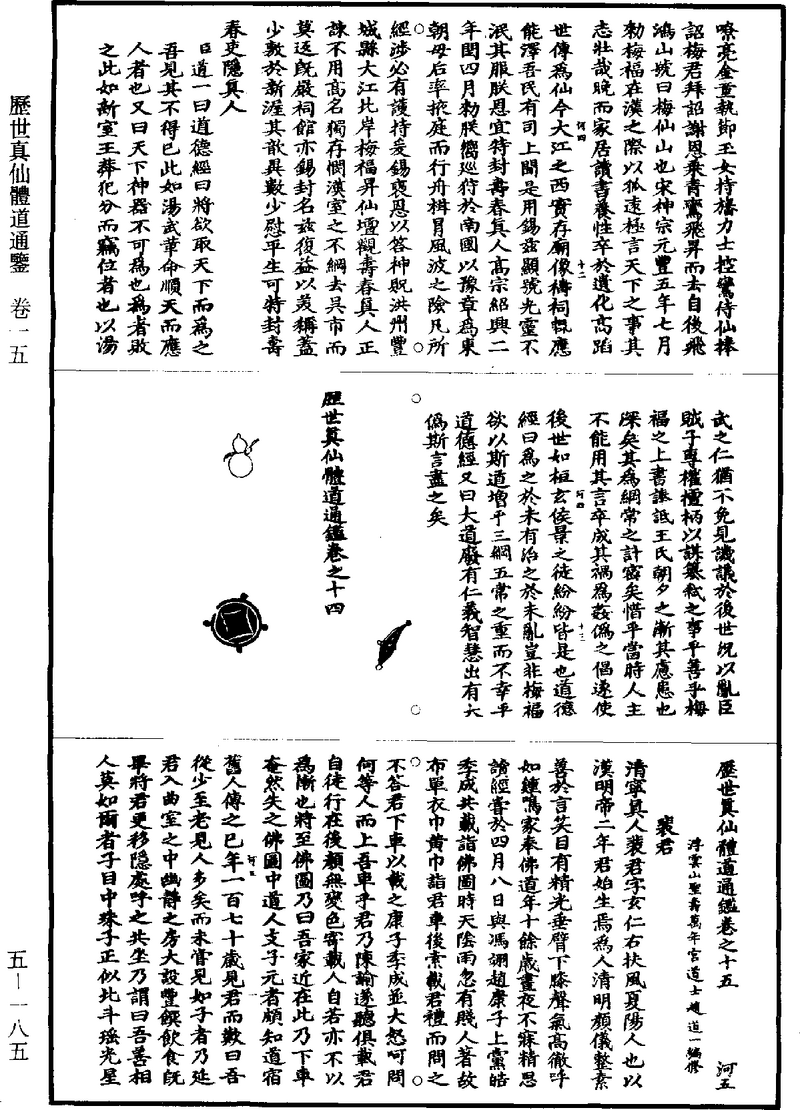 歷世真仙體道通鑒 卷一五
嘹亮金童執節玉女持旛力士控鸞侍仙捧
詔梅君拜詔謝恩乘青鸞飛昇而去自後飛
鴻山號曰梅仙山也宋神宗元豐五年七月
勑梅福在漢之際以孤遠極言天下之事其
志壯哉晚而家居讀書養性卒於遺化高蹈
世傳為仙今大江之西實存廟像禱祠輒應
能澤吾民有司上聞是用錫茲顯號光靈不
泯其服朕恩宜特封壽春真人高宗紹興二
年閏四月勑朕嚮巡狩於南國以豫章為東
朝母后率掖庭而行舟楫冒風波之險凡所
經涉必有護持爰錫褒恩以答神貺洪州豐
城縣大江北岸梅福昇仙壇觀壽春真人正
諫不用高名獨存憫漢室之不綱去吳市而
莫返既嚴祠館亦錫封名茲復益以美稱蓋
少敷於新渥其歆異數少慰平生可特封壽
春吏隱真人
臣道一曰道德經曰將欲取天下而為之
吾見其不得已此如湯武革命順天而應
人者也又曰天下神器不可為也為者敗
之此如新室王莽犯分而竊位者也以湯
武之仁猶不免見譏議於後世況以亂臣
賊子專權擅柄以謀篡弒之事乎善乎梅
福之上書譏詆王氏朝夕之漸其慮患也
深矣其為綱常之計密矣惜乎當時人主
不能用其言卒成其禍為姦偽之倡遂使
後世如桓玄侯景之徒紛紛皆是也道德
經曰為之於未有治之於未亂豈非梅福
欲以斯道增乎三綱五常之重而不幸乎
道德經又曰大道廢有仁義智慧出有大
偽斯言盡之矣
歷世真仙體道通鑑卷之十四
歷世真仙體道通鑑卷之十五
河五
浮雲山聖壽萬年宮道士趙道一編修
裴君
清寧真人裴君字玄仁右扶風夏陽人也以
漢明帝二年君始生焉為人清明顏儀整素
善於言笑目有精光垂臂下膝聲氣高徹呼
如鍾鳴家奉佛道年十餘歲晝夜不寐精思
讀經嘗於四月八日與馮翊趙康子上黨皓
季成共載詣佛圖時天陰雨忽有賤人著故
布單衣巾黃巾詣君車後索載君禮而問之
不答君下車以載之康子季成並大怒呵問
何等人而上吾車乎君乃陳諭遂聽俱載君
自徒行在後顏無變色寄載人自若亦不以
為慚也將至佛圖乃曰吾家近在此乃下車
奄然失之佛圖中道人支子元者頗知道宿
舊人傳之已年一百七十歲見君而歎曰吾
從少至老見人多矣而未嘗見如子者乃延
君入曲室之中幽靜之房大設豐饌飲食既
畢將君更移隱處呼之共坐乃謂曰吾善相
人莫如爾者子目中珠子正似北斗瑤光星
五－一八五